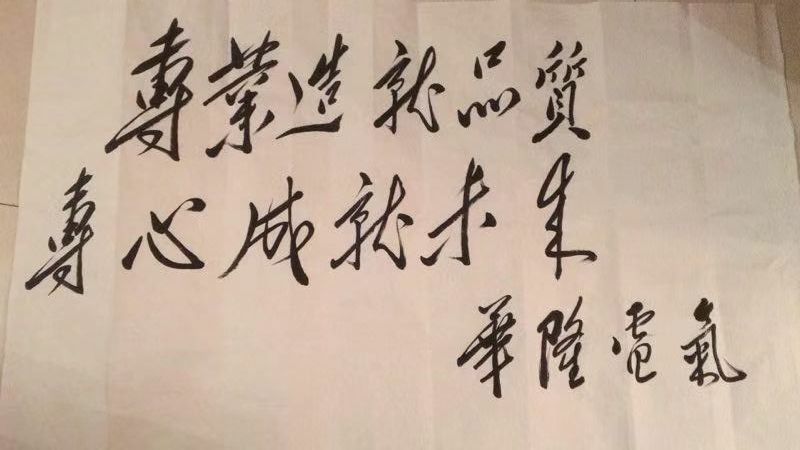 專業造就品質
專心成就未来
華隆電氣